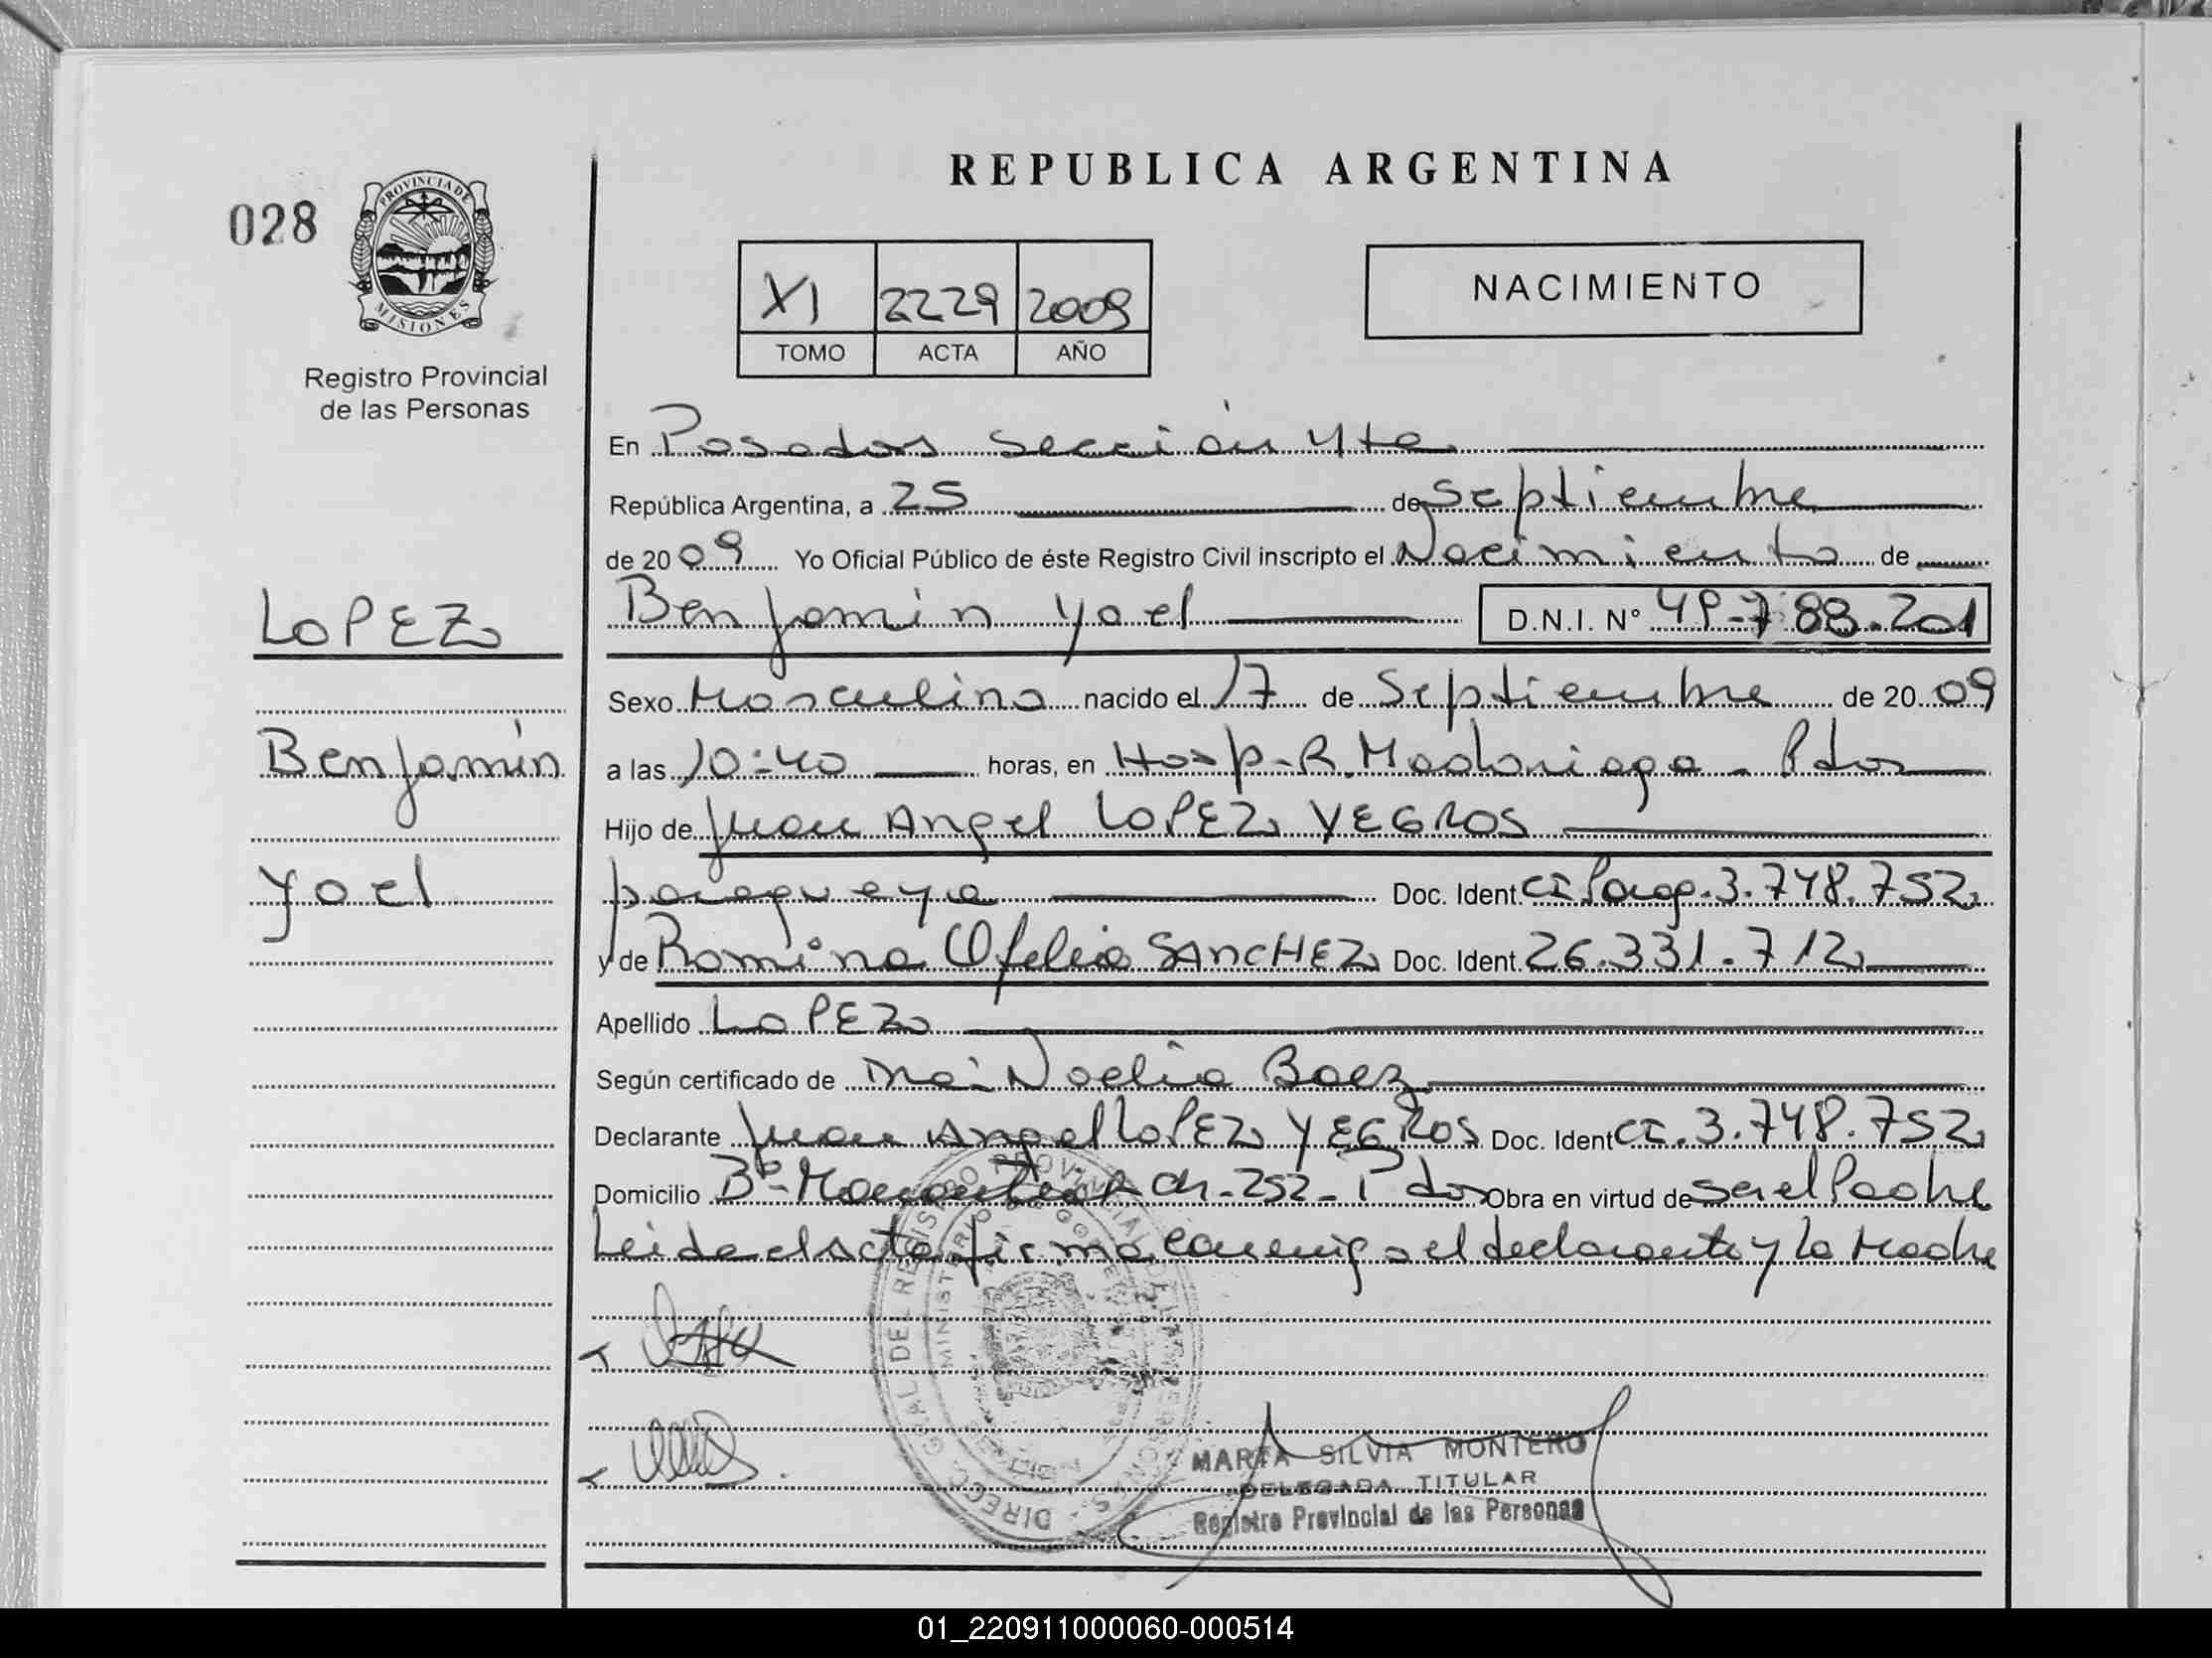 REPUBLICA ARGENTINA
028
PROVINCIA DE
MISIONES
Registro Provincial
de las Personas
XI 2229 2009
TOMO ACTA AÑO
NACIMIENTO
LOPEZ
Benjamín
Yoel
En Posadas Sección 4ta
República Argentina, a 25 de Septiembre
de 2009 Yo Oficial Público de éste Registro Civil inscripto el Nacimiento de
Benjamin Yoel D.N.I. N° 49.788.201
Sexo Masculino nacido el 17 de Septiembre de 2009
a las 10:40 horas, en Hosp. R. Madariaga - Pdas
Hijo de Juan Angel LOPEZ YEGROS
paraguaya Doc. Ident. CI Parag. 3.748.752
y de Romina Ofelia SANCHEZ Doc. Ident. 26.331.712
Apellido LOPEZ
Según certificado de Dra. Noelia Baez
Declarante Juan Angel LOPEZ YEGROS Doc. Ident CI. 3.748.752
Domicilio B°- Ch-252- Pdas Obra en virtud de ser el Padre
Leida el Acta firma conmigo el declarante y la Madre
DIRECC. GRAL DEL REGISTRO PROVINCIAL DE LAS PERSONAS
MINISTERIO DE GOBIERNO
MARTA SILVIA MONTERO
DELEGADA TITULAR
Registro Provincial de las Personas
01_220911000060-000514